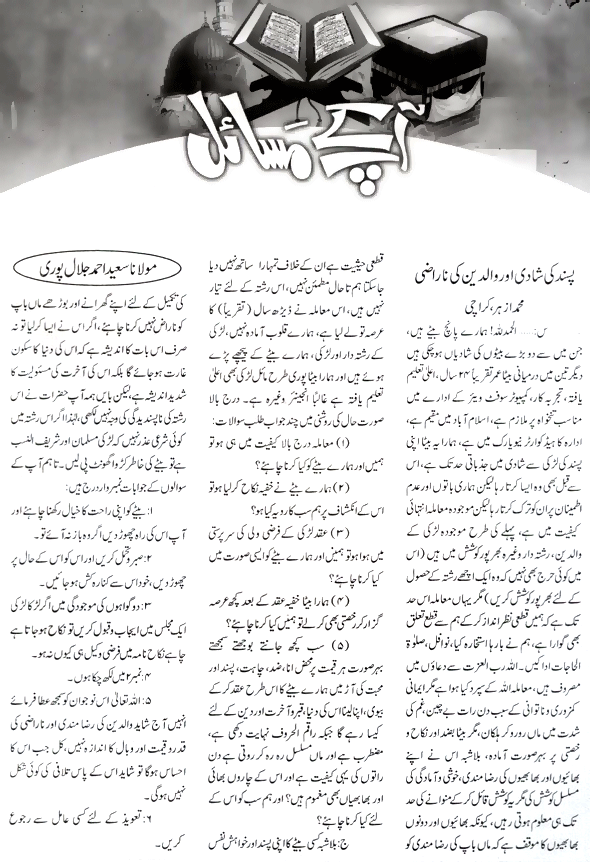 آپ کے مسائل
پسند کی شادی اور والدین کی ناراضی
محمد از ہر، کراچی
س:...... الحمدللہ! ہمارے پانچ بیٹے ہیں،
جن میں سے دو بڑے بیٹوں کی شادیاں ہو چکی ہیں
دیگر تین میں درمیانی بیٹا عمر تقریباً ۲۴ سال، اعلیٰ تعلیم
یافتہ، تجربہ کار، کمپیوٹر سوفٹ ویئر کے ادارے میں
مناسب تنخواہ پر ملازم ہے، اسلام آباد میں مقیم ہے،
ادارہ کا ہیڈ کوارٹر نیویارک میں ہے، ہمارا یہ بیٹا اپنی
پسند کی لڑکی سے شادی میں جذباتی حد تک ہے، اس
سے قبل بھی وہ ایسا کرتا رہا لیکن ہماری باتوں اور عدم
اطمینان پر ان کو ترک کرتا رہا لیکن موجودہ معاملہ انتہائی
کیفیت میں ہے، پہلے کی طرح موجودہ لڑکی کے
والدین، رشتہ دار وغیرہ بھرپور کوشش میں ہیں (اس
میں کوئی حرج بھی نہیں کہ وہ ایک اچھے رشتہ کے حصول
کے لئے بھرپور کوشش کریں) مگر یہاں معاملہ اس حد
تک ہے کہ ہمیں قطعی نظر انداز کر کے ہم سے قطع تعلق
بھی گوارا ہے، ہم نے بارہا استخارہ کیا، نوافل، صلوٰۃ
الحاجات ادا کیں۔ اللہ رب العزت سے دعاؤں میں
مصروف ہیں، معاملہ اللہ کے سپرد کیا ہوا ہے مگر ایمانی
کمزوری و ناتوانی کے سبب دن رات بے چین، غم کی
شدت میں ماں رو رو کر ہلکان، مگر بیٹا بضد اور نکاح و
رخصتی پر بہر صورت آمادہ، بلاشبہ اس نے اپنے
بھائیوں اور بھابھیوں کی رضا مندی، خوشی و آمادگی کی
مسلسل کوشش کی مگر یہ کوشش قائل کر کے منوانے کی حد
تک ہی معلوم ہوتی رہیں، کیونکہ بھائیوں اور دونوں
بھابھیوں کا موقف ہے کہ ماں باپ کی رضا مندی کو
قطعی حیثیت ہے ان کے خلاف تمہارا ساتھ نہیں دیا
جا سکتا ہم تا حال مطمئن نہیں، اس رشتہ کے لئے تیار
نہیں ہیں، اس معاملہ نے ڈیڑھ سال (تقریباً) کا
عرصہ تو لے لیا ہے، ہمارے قلوب آمادہ نہیں، لڑکی
کے رشتہ دار اور لڑکی، ہمارے بیٹے کے پیچھے پڑے
ہوئے ہیں اور ہمارا بیٹا پوری طرح مائل لڑکی بھی اعلیٰ
تعلیم یافتہ ہے غالباً انجینئر وغیرہ ہے۔ درج بالا
صورت حال کی روشنی میں چند جواب طلب سوالات:
(۱) معاملہ درج بالا کیفیت میں ہی ہو تو
ہمیں اور ہمارے بیٹے کو کیا کرنا چاہئے؟
(۲) ہمارے بیٹے نے خفیہ نکاح کر لیا ہو تو
اس کے انکشاف پر ہم سب کا رویہ کیا ہو؟
(۳) عقد لڑکی کے فرضی ولی کی سرپرستی
میں ہوا ہو تو ہمیں اور ہمارے بیٹے کو ایسی صورت میں
کیا کرنا چاہئے؟
(۴) ہمارا بیٹا خفیہ عقد کے بعد کچھ عرصہ
گزار کر رخصتی بھی کر لے تو ہمیں کیا کرنا چاہئے؟
(۵) سب کچھ جانتے بوجھتے سمجھتے
بہر صورت ہر قیمت پر محض انا، ضد، چاہت، پسند اور
محبت کی آڑ میں ہمارے بیٹے کا اس طرح عقد کر کے
بیوی، اپنا لینا اس کی دنیا، قبر و آخرت اور دین کے لئے
کیسا رہے گا جبکہ راقم الحروف نہایت دکھی ہے،
مضطرب ہے اور ماں مسلسل رہ رہ کر روتی ہے دن
راتوں کی یہی کیفیت ہے اور اس کے چاروں بھائی
اور بھابھیاں بھی مغموم ہیں؟ اور ہم سب کو اس کے
لئے کیا کرنا چاہئے؟
ج: بلاشبہ کسی بیٹے کا اپنی پسند اور خواہش نفس
مولانا سعید احمد جلال پوری
کی تکمیل کے لئے اپنے گھرانے اور بوڑھے ماں باپ
کو ناراض نہیں کرنا چاہئے، اگر اس نے ایسا کر لیا تو نہ
صرف اس بات کا اندیشہ ہے کہ اس کی دنیا کا سکون
غارت ہو جائے گا بلکہ اس کی آخرت کی مسئولیت کا
شدید اندیشہ ہے، لیکن بایں ہمہ آپ حضرات نے اس
رشتہ کی ناپسندیدگی کی وجہ نہیں لکھی، لہٰذا اگر اس رشتہ میں
کوئی شرعی عذر نہیں کہ لڑکی مسلمان اور شریف النسب
ہے تو بیٹے کی خاطر کڑوا گھونٹ پی لیں۔ تاہم آپ کے
سوالوں کے جوابات نمبر وار درج ہیں:
۱: بیٹے کو اپنی راحت کا خیال رکھنا چاہئے اور
آپ اس کی راہ چھوڑ دیں اگر وہ باز نہ آئے تو۔
۲: صبر و تحمل کریں اور اس کو اس کے حال پر
چھوڑ دیں، خود اس سے کنارہ کش ہو جائیں۔
۳: دو گواہوں کی موجودگی میں اگر لڑکا لڑکی
ایک مجلس میں ایجاب و قبول کریں تو نکاح ہو جاتا ہے
چاہے نکاح نامہ میں فرضی وکیل ہی کیوں نہ ہو۔
۴: نمبر ۲ میں لکھ چکا ہوں۔
۵: اللہ تعالیٰ اس نوجوان کو سمجھ عطا فرمائے
انہیں آج شاید والدین کی رضا مندی اور ناراضی کی
قدر و قیمت اور وبال کا اندازہ نہیں، کل جب اس کا
احساس ہوگا تو شاید اس کے پاس تلافی کی کوئی شکل
نہیں ہوگی۔
۶: تعویذ کے لئے کسی عامل سے رجوع
کریں۔